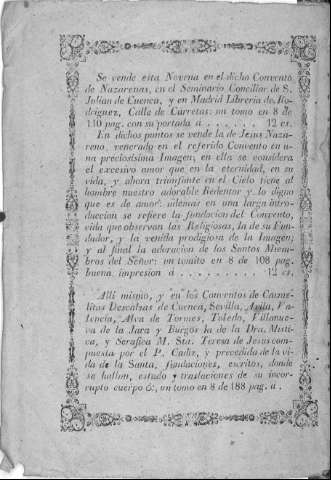 Se vende esta Novena en el dicho Convento
de Nazarenas, en el Seminario Conciliar de S.
Julian de Cuenca, y en Madrid Libreria de Ro-
driguez, Calle de Carretas: un tomo en 8 de
110 pag. con su portada a ...... 12 cs.
En dichos puntos se vende la de Jesus Naza-
reno, venerado en el referido Convento en u-
na preciosisima Imagen; en ella se considera
el excesivo amor que en la eternidad, en su
vida, y ahora triunfante en el Cielo tiene al
hombre nuestro adorable Redentor y lo digno
que es de amor: ademas en una larga intro-
duccion se refiere la fundacion del Convento,
vida que observan las Religiosas, la de su Fun-
dador, y la venida prodigiosa de la Imagen;
y al final la adoracion de los Santos Miem-
bros del Señor: un tomito en 8 de 108 pag.
buena impresion a ......... 12 cs.
Alli mismo, y en los Conventos de Carme-
litas Descalzas de Cuenca, Sevilla, Avila, Va-
lencia, Alva de Tormes, Toledo, Villanue-
va de la Jara y Burgos la de la Dra. Misti-
ca, y Serafica M. Sta. Teresa de Jesus com-
puesta por el P. Cadiz, y precedida de la vi-
da de la Santa, fundaciones, escritos, donde
se hallan, estado y traslaciones de su incor-
rupto cuerpo &c, un tomo en 8 de 188 pag. a.